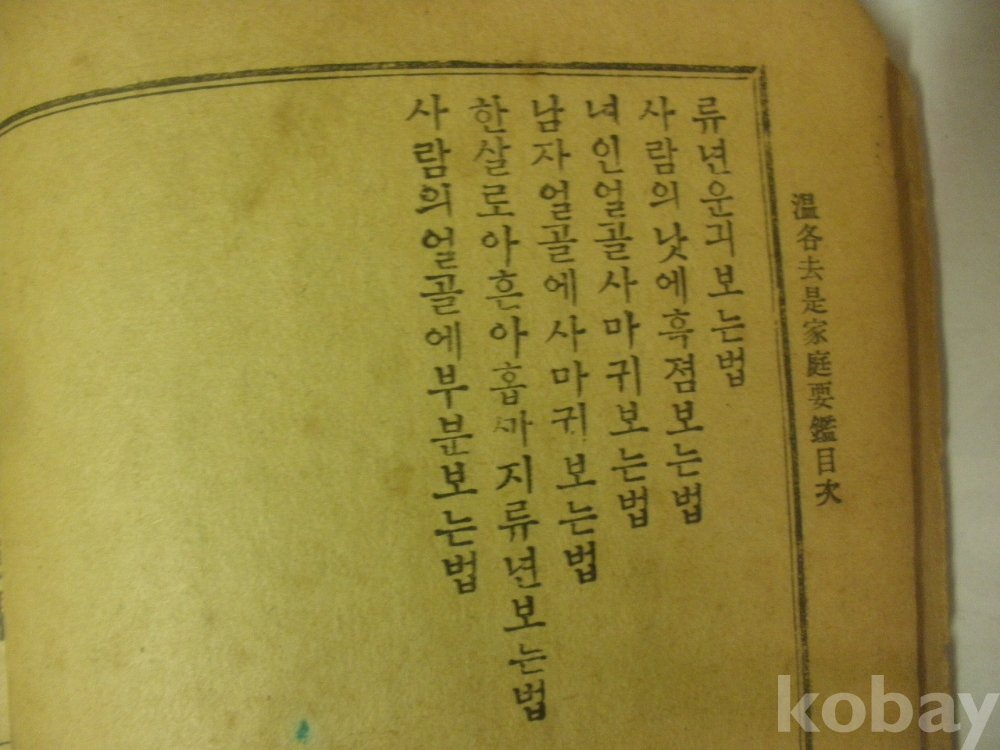 温各去是家庭要鑑目次
류년운긔보는법
사람의낫에흑졈보는법
녀인얼골사마귀보는법
남자얼골에사마귀보는법
한살로아흔아홉까지류년보는법
사람의얼골에부분보는법
kobay